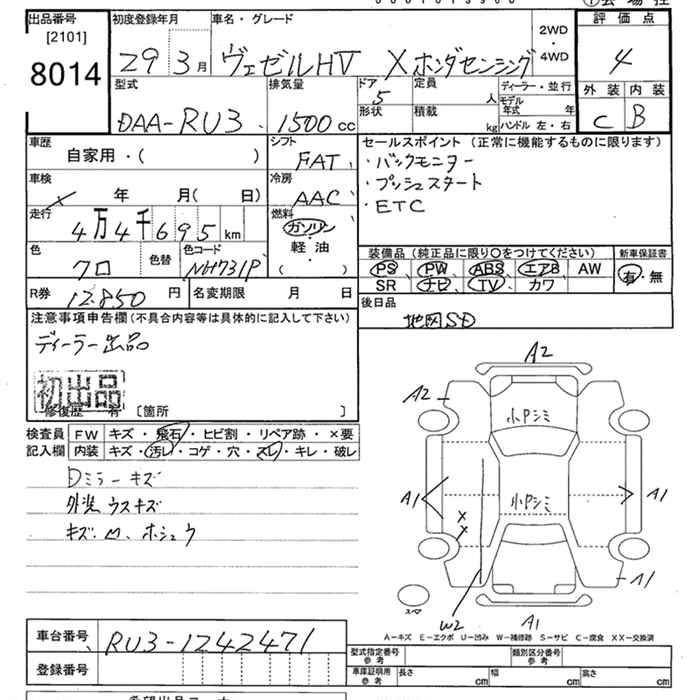 出品番号 初度登録年月 車名・グレード 評価点
[2101]
8014
29 3月 ヴェゼルHV Xホンダセンシング 2WD・4WD 4
型式 排気量 ドア 定員 ディーラー・並行 外装 内装
5 人 モデル年式 年
DAA-RU3 1500cc 形状 積載 kg ハンドル 左・右 C B
車歴 シフト セールスポイント(正常に機能するものに限ります)
自家用・( ) FAT ・バックモニター
車検 冷房 ・プッシュスタート
年 月( 日) AAC ・ETC
走行 燃料
4万4千695km ガソリン
軽・油
( ・ )
色 色替 色コード 装備品(純正品に限り○をつけてください) 新車保証書
クロ NH731P PS PW ABS エアB AW 有・無
SR ナビ TV カワ
R券 12.850円 名変期限 月 日 後日品
地図SD
注意事項申告欄(不具合内容等は具体的に記入して下さい)
ディーラー出品
初出品
修復歴 有 [箇所 ]
検査員記入欄 FW キズ・飛石・ヒビ割・リペア跡・×要
内装 キズ・汚レ・コゲ・穴・スレ・キレ・破レ
Dミラーキズ
外装ウスキズ
キズ・凹、ホシュウ
A2
A2
小Pシミ
A1 小Pシミ A1
X
X
A1
スペア
W2 A1
A-キズ E-エクボ U-凹み W-補修跡 S-サビ C-腐食 XX-交換済
車台番号 RU3-1242471
登録番号
型式指定番号 参考 類別区分番号 参考
車庫証明用 参考 長さ cm 幅 cm 高さ cm